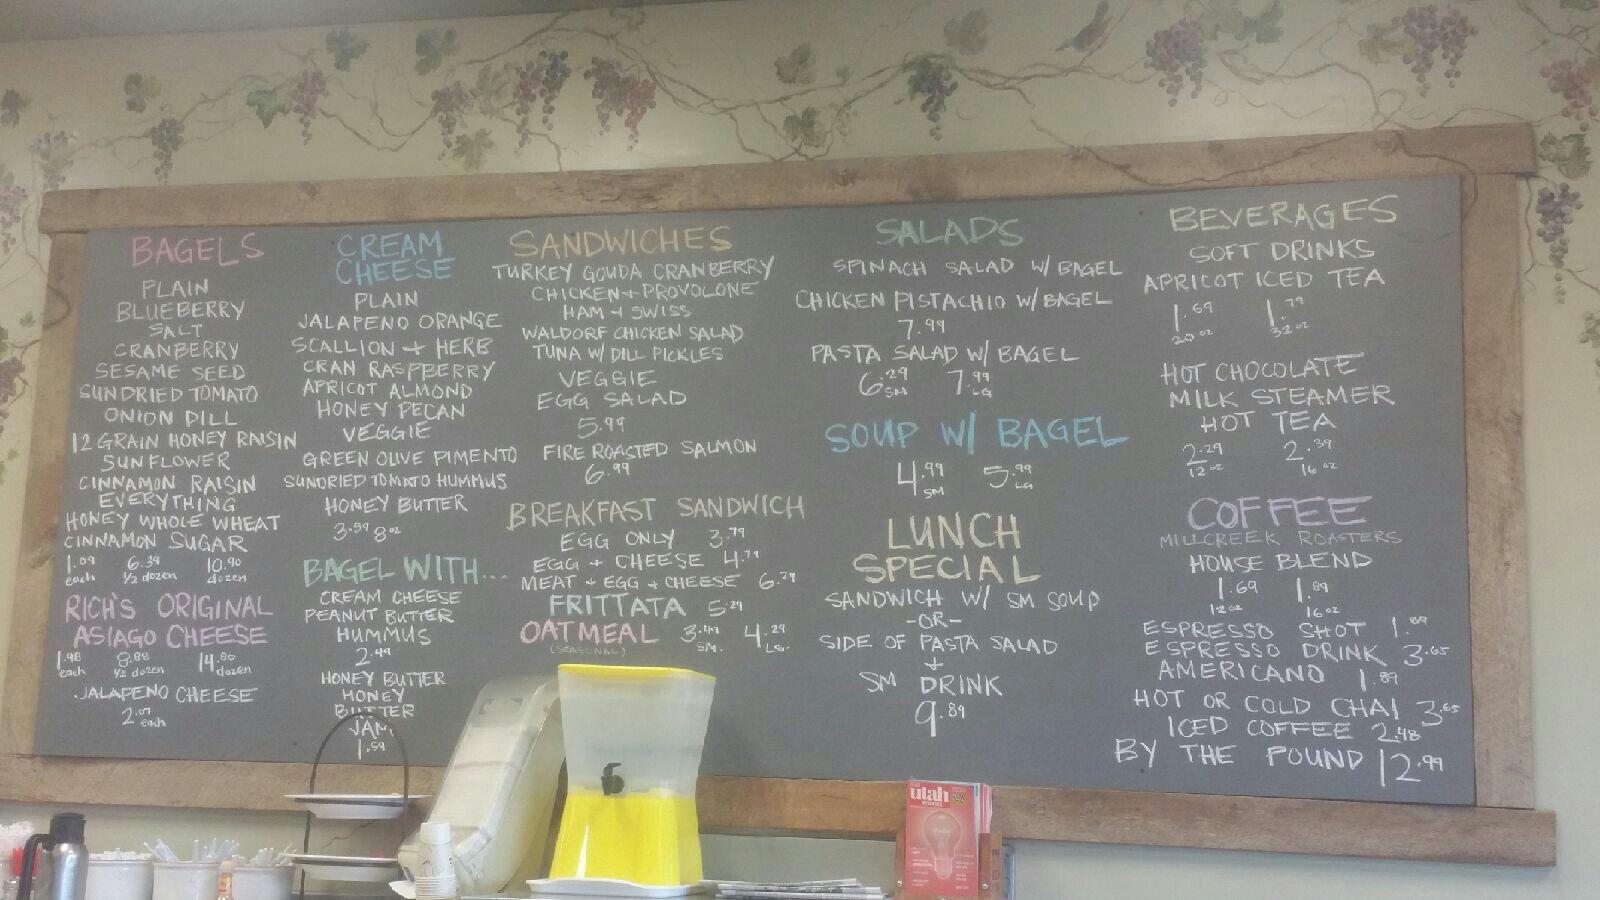 BAGELS
PLAIN
BLUEBERRY
SALT
CRANBERRY
SESAME SEED
SUNDRIED TOMATO
ONION DILL
12 GRAIN HONEY RAISIN
SUNFLOWER
CINNAMON RAISIN
EVERYTHING
HONEY WHOLE WHEAT
CINNAMON SUGAR
1.09 6.39 10.90
each 1/2 dozen dozen
RICH'S ORIGINAL
ASIAGO CHEESE
1.98 8.88 14.80
each 1/2 dozen dozen
JALAPENO CHEESE
2.07 each
CREAM
CHEESE
PLAIN
JALAPENO ORANGE
SCALLION + HERB
CRAN RASPBERRY
APRICOT ALMOND
HONEY PECAN
VEGGIE
GREEN OLIVE PIMENTO
SUNDRIED TOMATO HUMMUS
HONEY BUTTER
3.59 8oz
BAGEL WITH...
CREAM CHEESE
PEANUT BUTTER
HUMMUS
2.49
HONEY BUTTER
HONEY
BUTTER
JAM
1.59
SANDWICHES
TURKEY GOUDA CRANBERRY
CHICKEN + PROVOLONE
HAM + SWISS
WALDORF CHICKEN SALAD
TUNA W/ DILL PICKLES
VEGGIE
EGG SALAD
5.99
FIRE ROASTED SALMON
6.99
BREAKFAST SANDWICH
EGG ONLY 3.79
EGG + CHEESE 4.79
MEAT + EGG + CHEESE 6.29
FRITTATA 5.29
OATMEAL 3.49 4.29
(SEASONAL) SM. LG.
SALADS
SPINACH SALAD W/ BAGEL
CHICKEN PISTACHIO W/ BAGEL
7.99
PASTA SALAD W/ BAGEL
6.29 SM 7.99 LG
SOUP W/ BAGEL
4.99 SM 5.99 LG
LUNCH
SPECIAL
SANDWICH W/ SM SOUP
-OR-
SIDE OF PASTA SALAD
+
SM DRINK
9.89
BEVERAGES
SOFT DRINKS
APRICOT ICED TEA
1.69 1.79
20oz 32oz
HOT CHOCOLATE
MILK STEAMER
HOT TEA
2.29 2.39
12oz 16oz
COFFEE
MILLCREEK ROASTERS
HOUSE BLEND
1.69 1.89
12oz 16oz
ESPRESSO SHOT 1.89
ESPRESSO DRINK 3.65
AMERICANO 1.89
HOT OR COLD CHAI 3.65
ICED COFFEE 2.48
BY THE POUND 12.99
utah